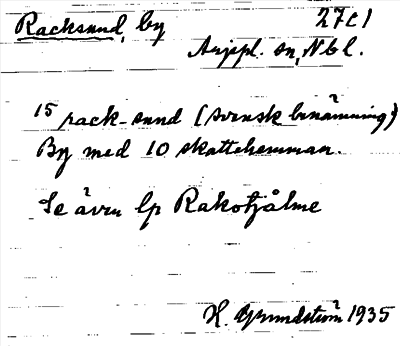 Racksund, by 27c1
Arjepl. sn, Nbl.
15 rack-sund (svensk benämning)
By med 10 skattehemman.
Se även lp Rakotjålme
H. Grundström 1935